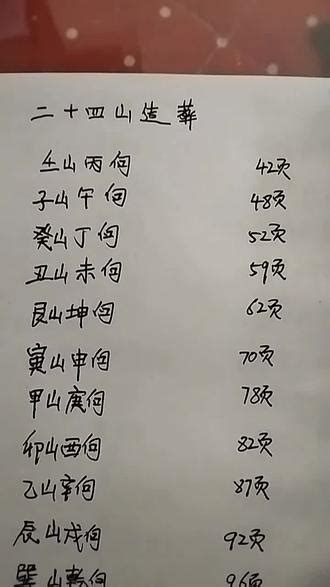 二十四山造葬
壬山丙向 42页
子山午向 48页
癸山丁向 52页
丑山未向 59页
艮山坤向 62页
寅山申向 70页
甲山庚向 78页
卯山酉向 82页
乙山辛向 87页
辰山戌向 92页
巽山乾向 96页